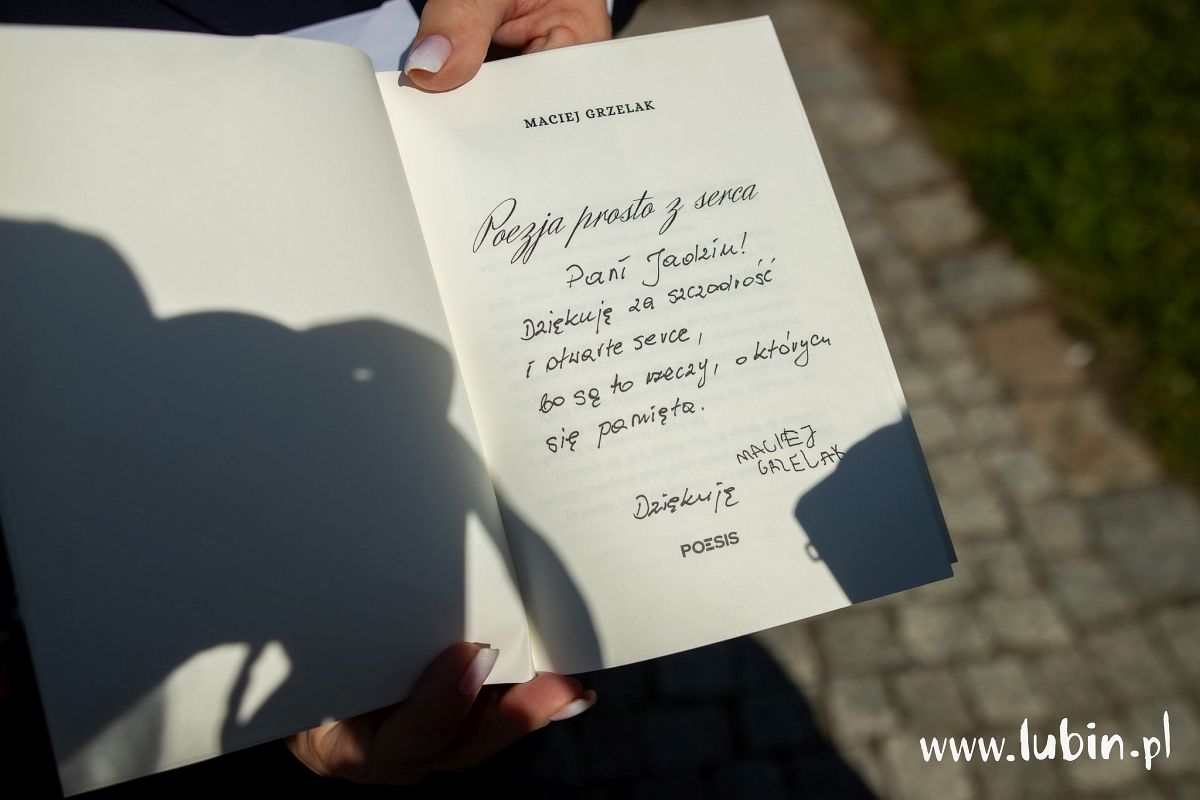 MACIEJ GRZELAK
Poezja prosto z serca
Pani Jadziu!
Dziękuję za szczodrość
i otwarte serce,
bo są to rzeczy, o których
się pamięta.
MACIEJ
GRZELAK
Dziękuję
POESIS
www.lubin.pl